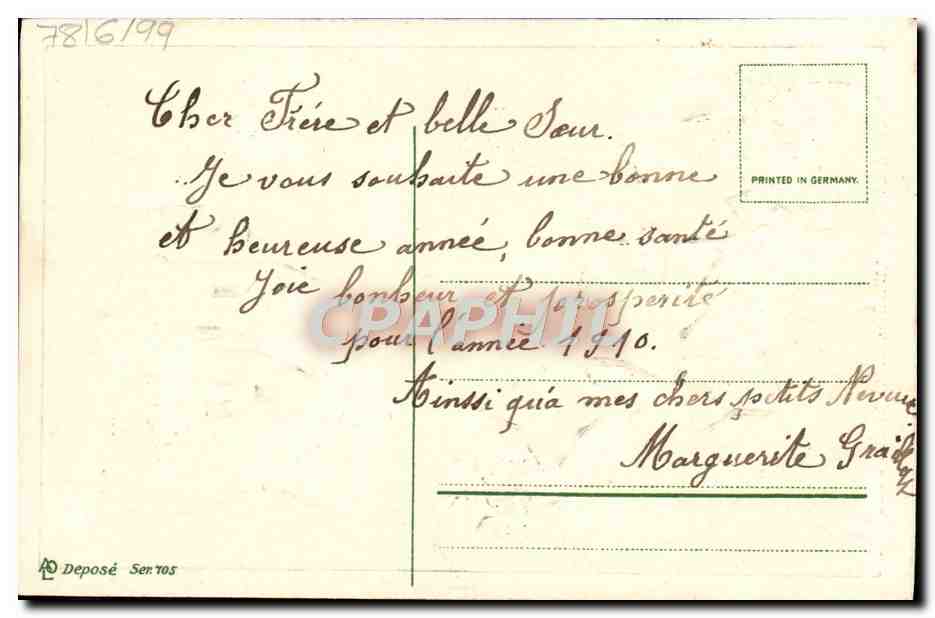 78/6/99
Cher Frére et belle Sœur.
Je vous souhaite une bonne
PRINTED IN GERMANY.
et heureuse année, bonne santé
Joie bonheur et prosperité
CPAPHIL
pour l'année 1910.
Ainssi qu'a mes chers petits
Marguerite
Deposé Ser. 705